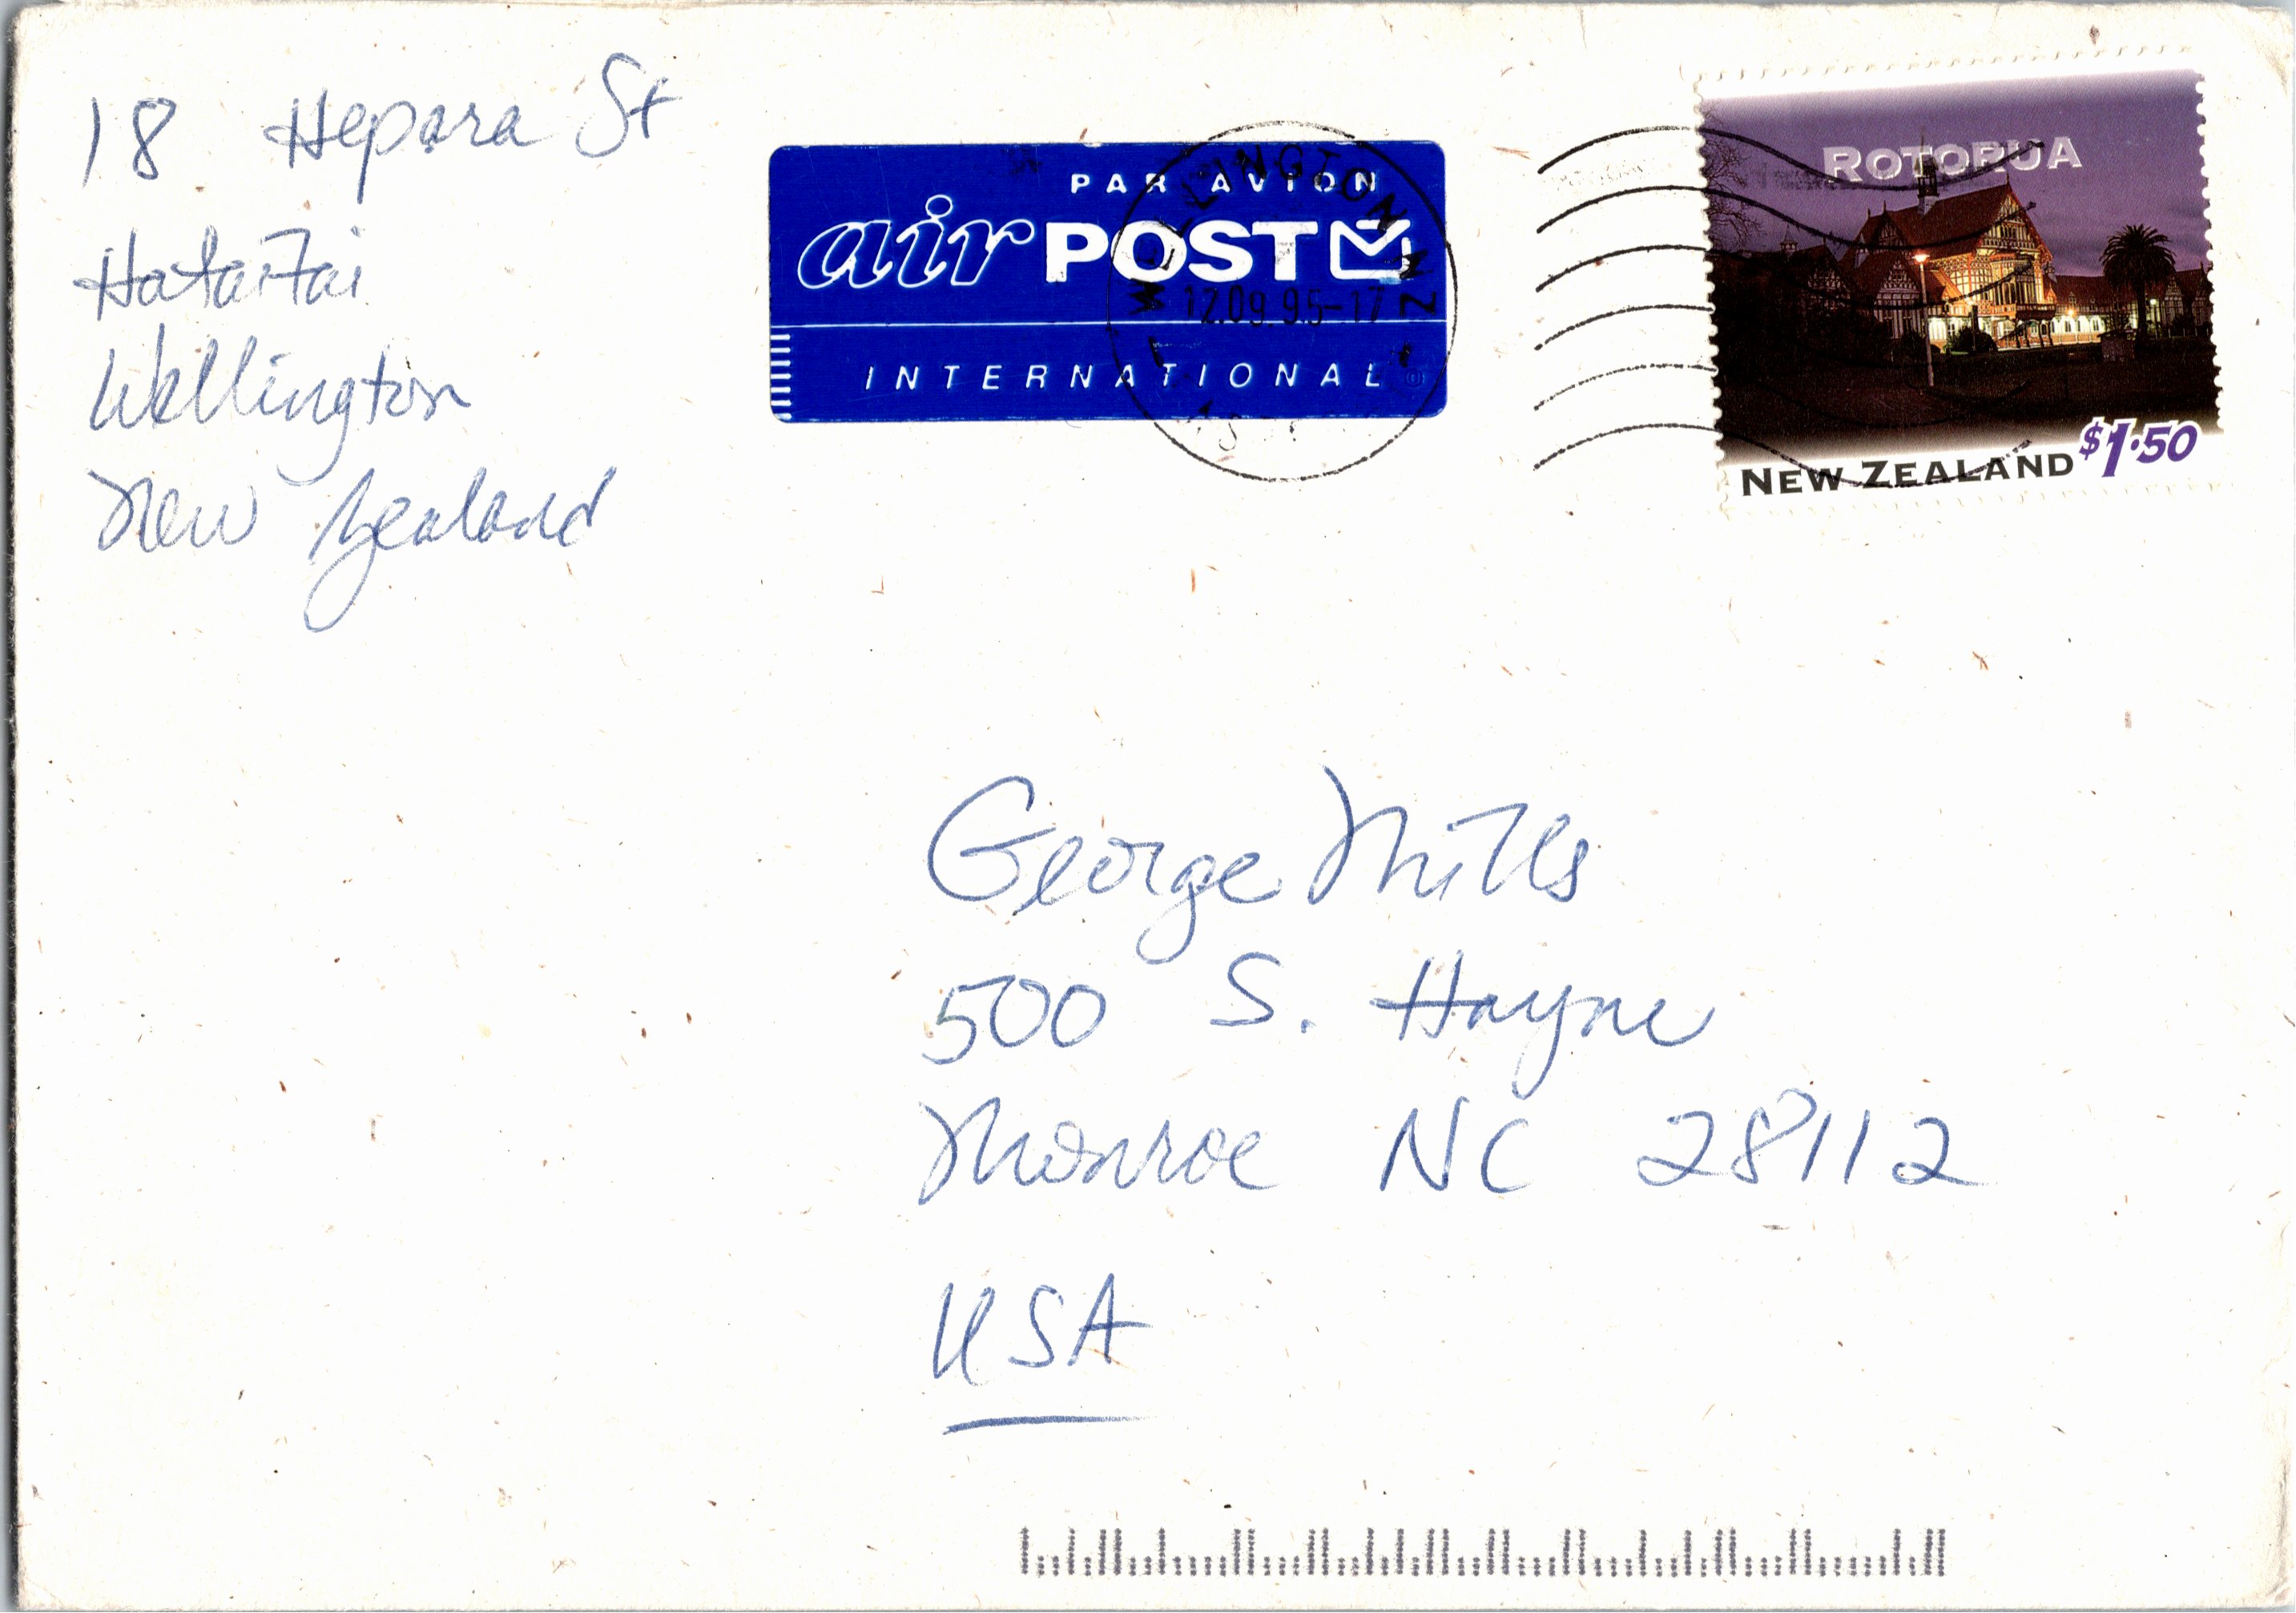 18 Hepara St
Hataitai
Wellington
New Zealand
PAR AVION
air POST
INTERNATIONAL
WELLINGTON NZ
12.09.95-17
ROTORUA
NEW ZEALAND $1.50
George Mills
500 S. Hayne
Monroe NC 28112
USA